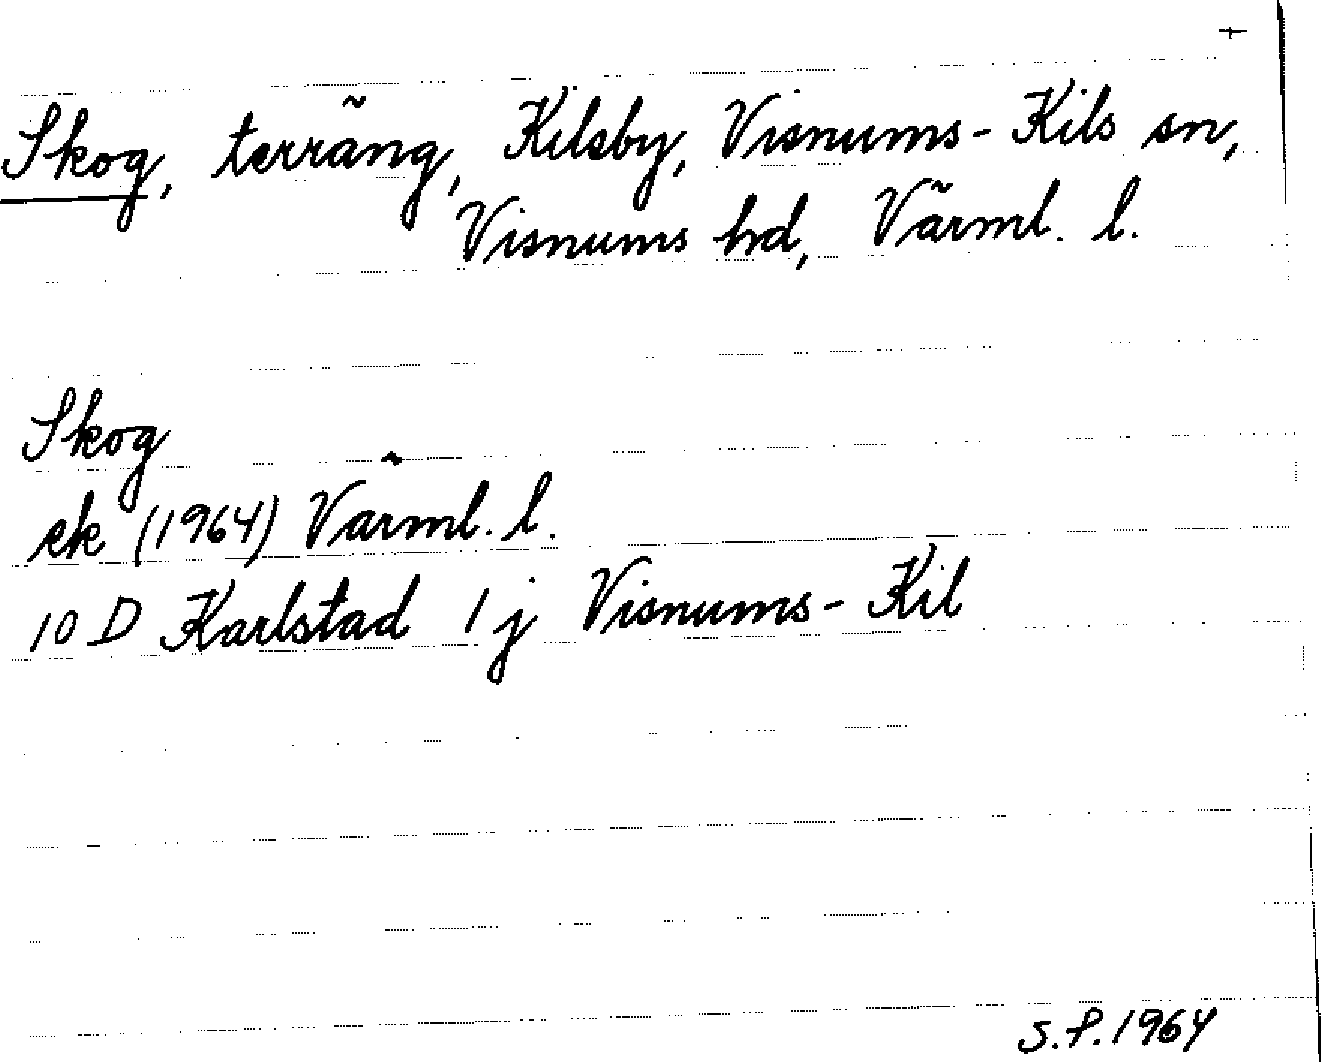 Skog, terräng, Kilsby, Visnums-Kils sn,
Visnums hd, Värml. l.
Skog
ek (1964) Värml. l.
10 D Karlstad 1 j Visnums-Kil
S.P. 1964